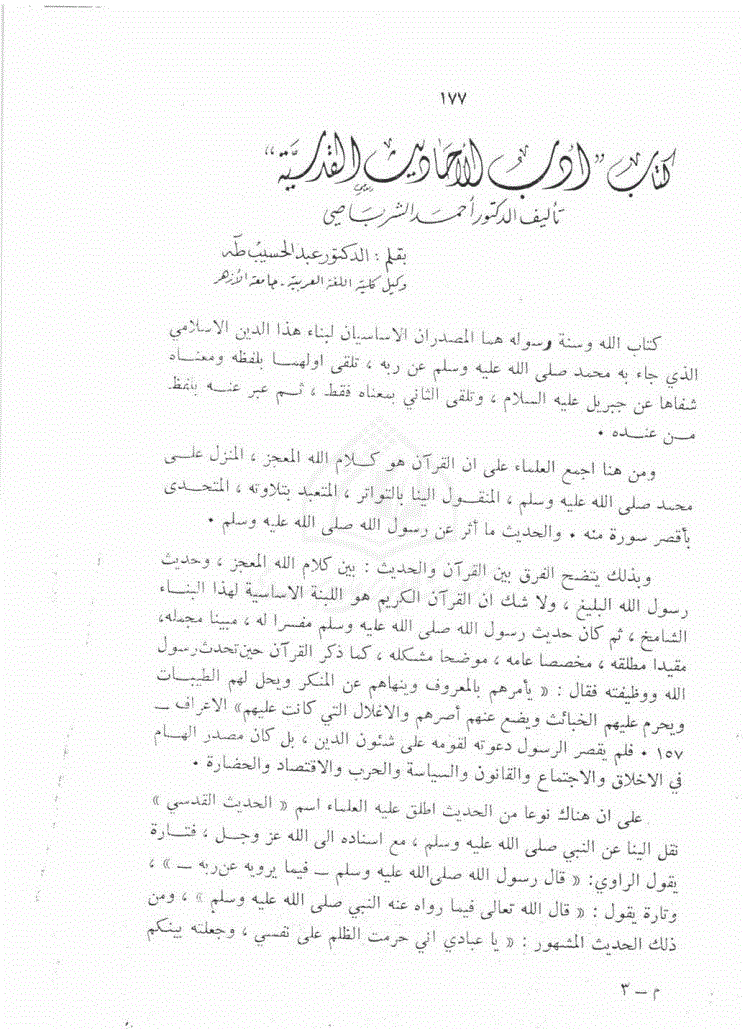 ١٧٧
كتاب "أدب الأحاديث القدسيَّة"
تأليف الدكتور أحمد الشرباصي
بقلم : الدكتور عبد الحسيب طه
وكيل كلية اللغة العربية - جامعة الأزهر
كتاب الله وسنة رسوله هما المصدران الاساسيان لبناء هذا الدين الاسلامي
الذي جاء به محمد صلى الله عليه وسلم عن ربه ، تلقى اولهما بلفظه ومعناه
شفاها عن جبريل عليه السلام ، وتلقى الثاني بمعناه فقط ، ثم عبر عنه بلفظ
من عنده ٠
ومن هنا اجمع العلماء على ان القرآن هو كلام الله المعجز ، المنزل على
محمد صلى الله عليه وسلم ، المنقول الينا بالتواتر ، المتعبد بتلاوته ، المتحدى
بأقصر سورة منه ٠ والحديث ما أثر عن رسول الله صلى الله عليه وسلم ٠
وبذلك يتضح الفرق بين القرآن والحديث : بين كلام الله المعجز ، وحديث
رسول الله البليغ ، ولا شك ان القرآن الكريم هو اللبنة الاساسية لهذا البناء
الشامخ ، ثم كان حديث رسول الله صلى الله عليه وسلم مفسرا له ، مبينا مجمله،
مقيدا مطلقه ، مخصصا عامه ، موضحا مشكله ، كما ذكر القرآن حين تحدث رسول
الله ووظيفته فقال : « يأمرهم بالمعروف وينهاهم عن المنكر ويحل لهم الطيبات
ويحرم عليهم الخبائث ويضع عنهم أصرهم والاغلال التي كانت عليهم» الاعراف —
١٥٧ ٠ فلم يقصر الرسول دعوته لقومه على شئون الدين ، بل كان مصدر الهام
في الاخلاق والاجتماع والقانون والسياسة والحرب والاقتصاد والحضارة ٠
على ان هناك نوعا من الحديث اطلق عليه العلماء اسم « الحديث القدسي »
نقل الينا عن النبي صلى الله عليه وسلم ، مع اسناده الى الله عز وجل ، فتارة
يقول الراوي: « قال رسول الله صلى الله عليه وسلم — فيما يرويه عن ربه — » ،
وتارة يقول : « قال الله تعالى فيما رواه عنه النبي صلى الله عليه وسلم » ، ومن
ذلك الحديث المشهور : « يا عبادي اني حرمت الظلم على نفسي ، وجعلته بينكم
م — ٣